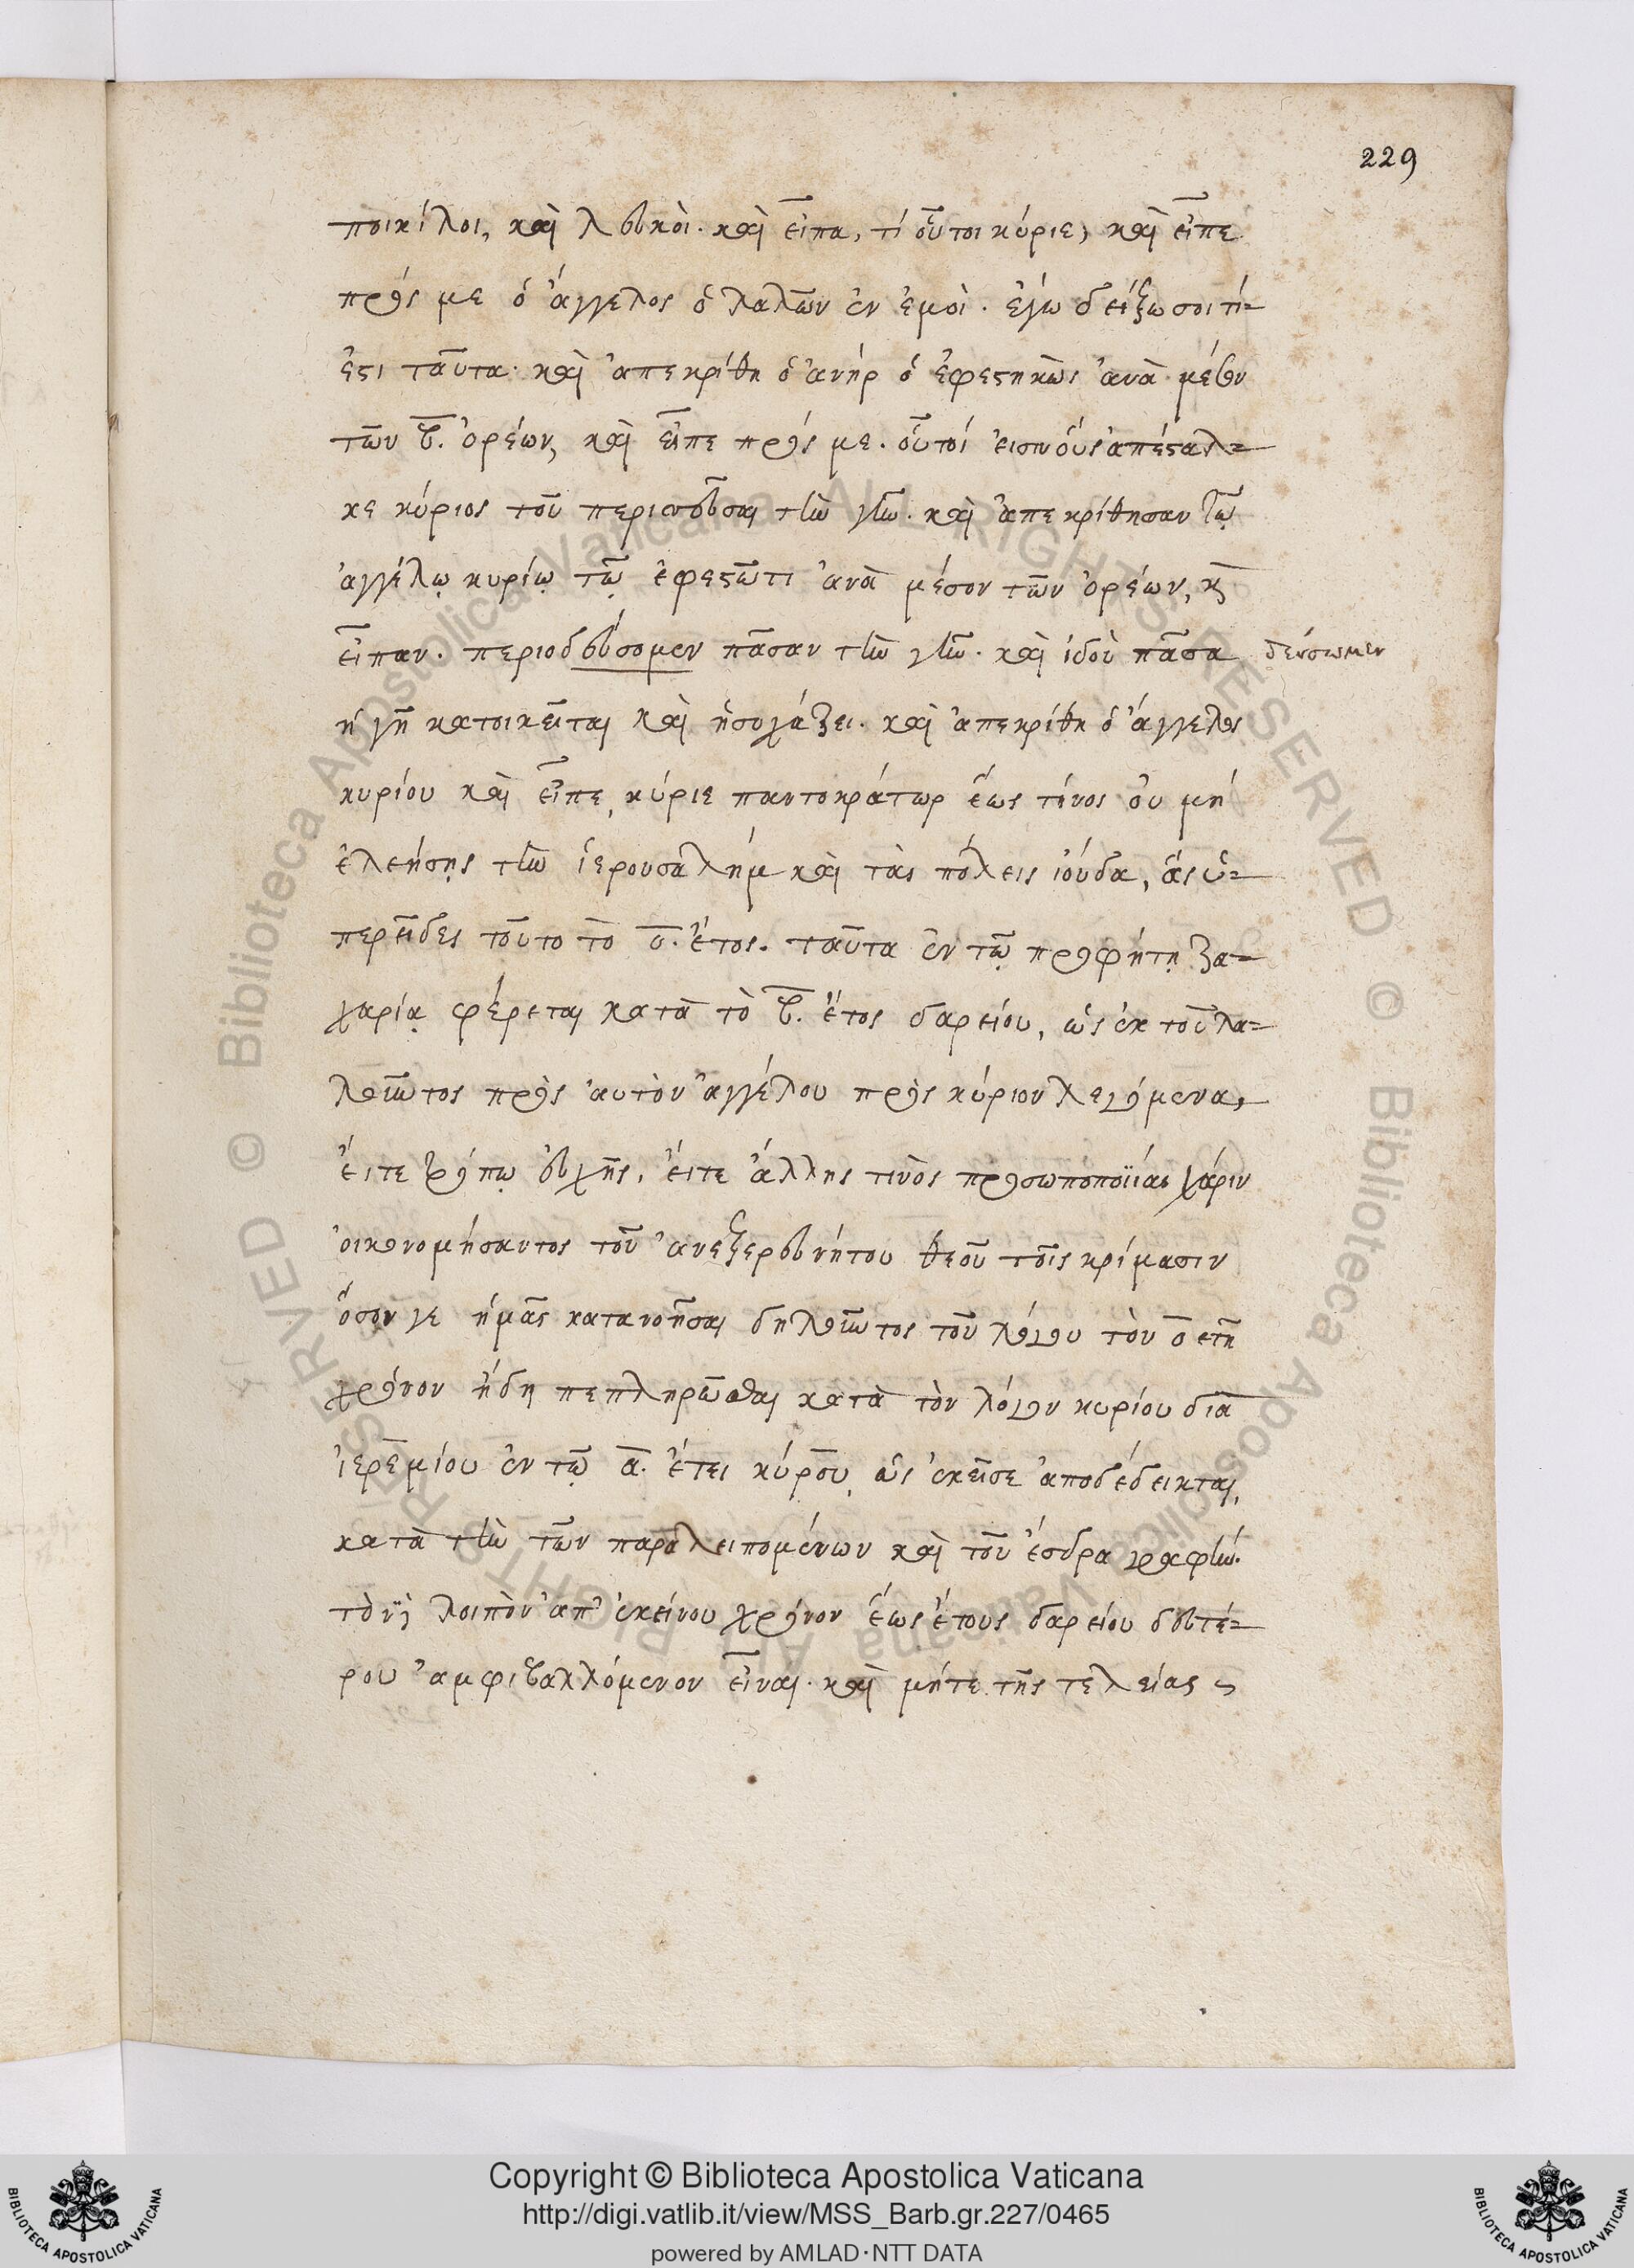 229
ποικίλοι, καὶ λευκοὶ. καὶ εἶπα, τί οὗτοι κύριε, καὶ εἶπε
πρός με ὁ ἄγγελος ὁ λαλῶν ἐν ἐμοὶ. ἐγὼ δείξω σοι τί
ἐστι ταῦτα. καὶ ἀπεκρίθη ὁ ἀνήρ ὁ ἐφεστηκὼς ἀνὰ μέσον
τῶν β̅. ὀρέων, καὶ εἶπε πρός με. οὗτοί εἰσιν οὓς ἀπέσταλ=
κε κύριος τοῦ περιοδεῦσαι τὴν γῆν. καὶ ἀπεκρίθησαν τῷ
ἀγγέλῳ κυρίῳ τῷ ἐφεστῶτι ἀνὰ μέσον τῶν ὀρέων, κὶ
εἶπαν. περιοδεύσομεν πᾶσαν τὴν γῆν. καὶ ἰδοὺ πᾶσα δεύσωμεν
ἡ γῆ κατοικεῖται καὶ ἡσυχάζει. καὶ ἀπεκρίθη ὁ ἄγγελος
κυρίου καὶ εἶπε, κύριε παντοκράτωρ ἕως τίνος οὐ μή
ἐλεήσῃς τὴν ἱερουσαλήμ καὶ τὰς πόλεις ἰούδα, ἃς ὑ=
περεῖδες τοῦτο τὸ ο̅. ἔτος. ταῦτα ἐν τῷ προφήτῃ ζα=
χαρίᾳ φέρεται κατὰ τὸ β̅. ἔτος δαρείου, ὡς ἐκ τοῦ λα=
λοῦντος πρὸς αὐτὸν ἀγγέλου πρὸς κύριον λεγόμενα,
εἴτε τρόπῳ εὐχῆς, εἴτε ἄλλης τινὸς προσωποποιΐας χάριν
οἰκονομήσαντος τοῦ ἀνεξερευνήτου θεοῦ τοῖς κρίμασιν
ὅσον γε ἡμᾶς κατανοῆσαι δηλοῦντος τοῦ λόγου τὸν ο̅ ετῆ
χρόνον ἤδη πεπληρῶσθαι κατὰ τὸν λόγον κυρίου διὰ
ἱερεμίου ἐν τῷ α̅. ἔτει κύρου, ὡς ἐκεῖσε ἀποδέδεικται,
κατὰ τὴν τῶν παραλειπομένων καὶ τοῦ ἔσδρα γραφήν.
τὸν λοιπὸν ἀπ' ἐκείνου χρόνον ἕως ἔτους δαρείου δευτέ=
ρου ἀμφιβαλλόμενον εἶναι. καὶ μήτε τῆς τελείας
Copyright © Biblioteca Apostolica Vaticana
http://digi.vatlib.it/view/MSS_Barb.gr.227/0465
powered by AMLAD·NTT DATA
BIBLIOTECA APOSTOLICA VATICANA
BIBLIOTECA APOSTOLICA VATICANA
© Biblioteca Apostolica Vaticana ALL RIGHTS RESERVED
© Biblioteca Apostolica Vaticana ALL RIGHTS RESERVED